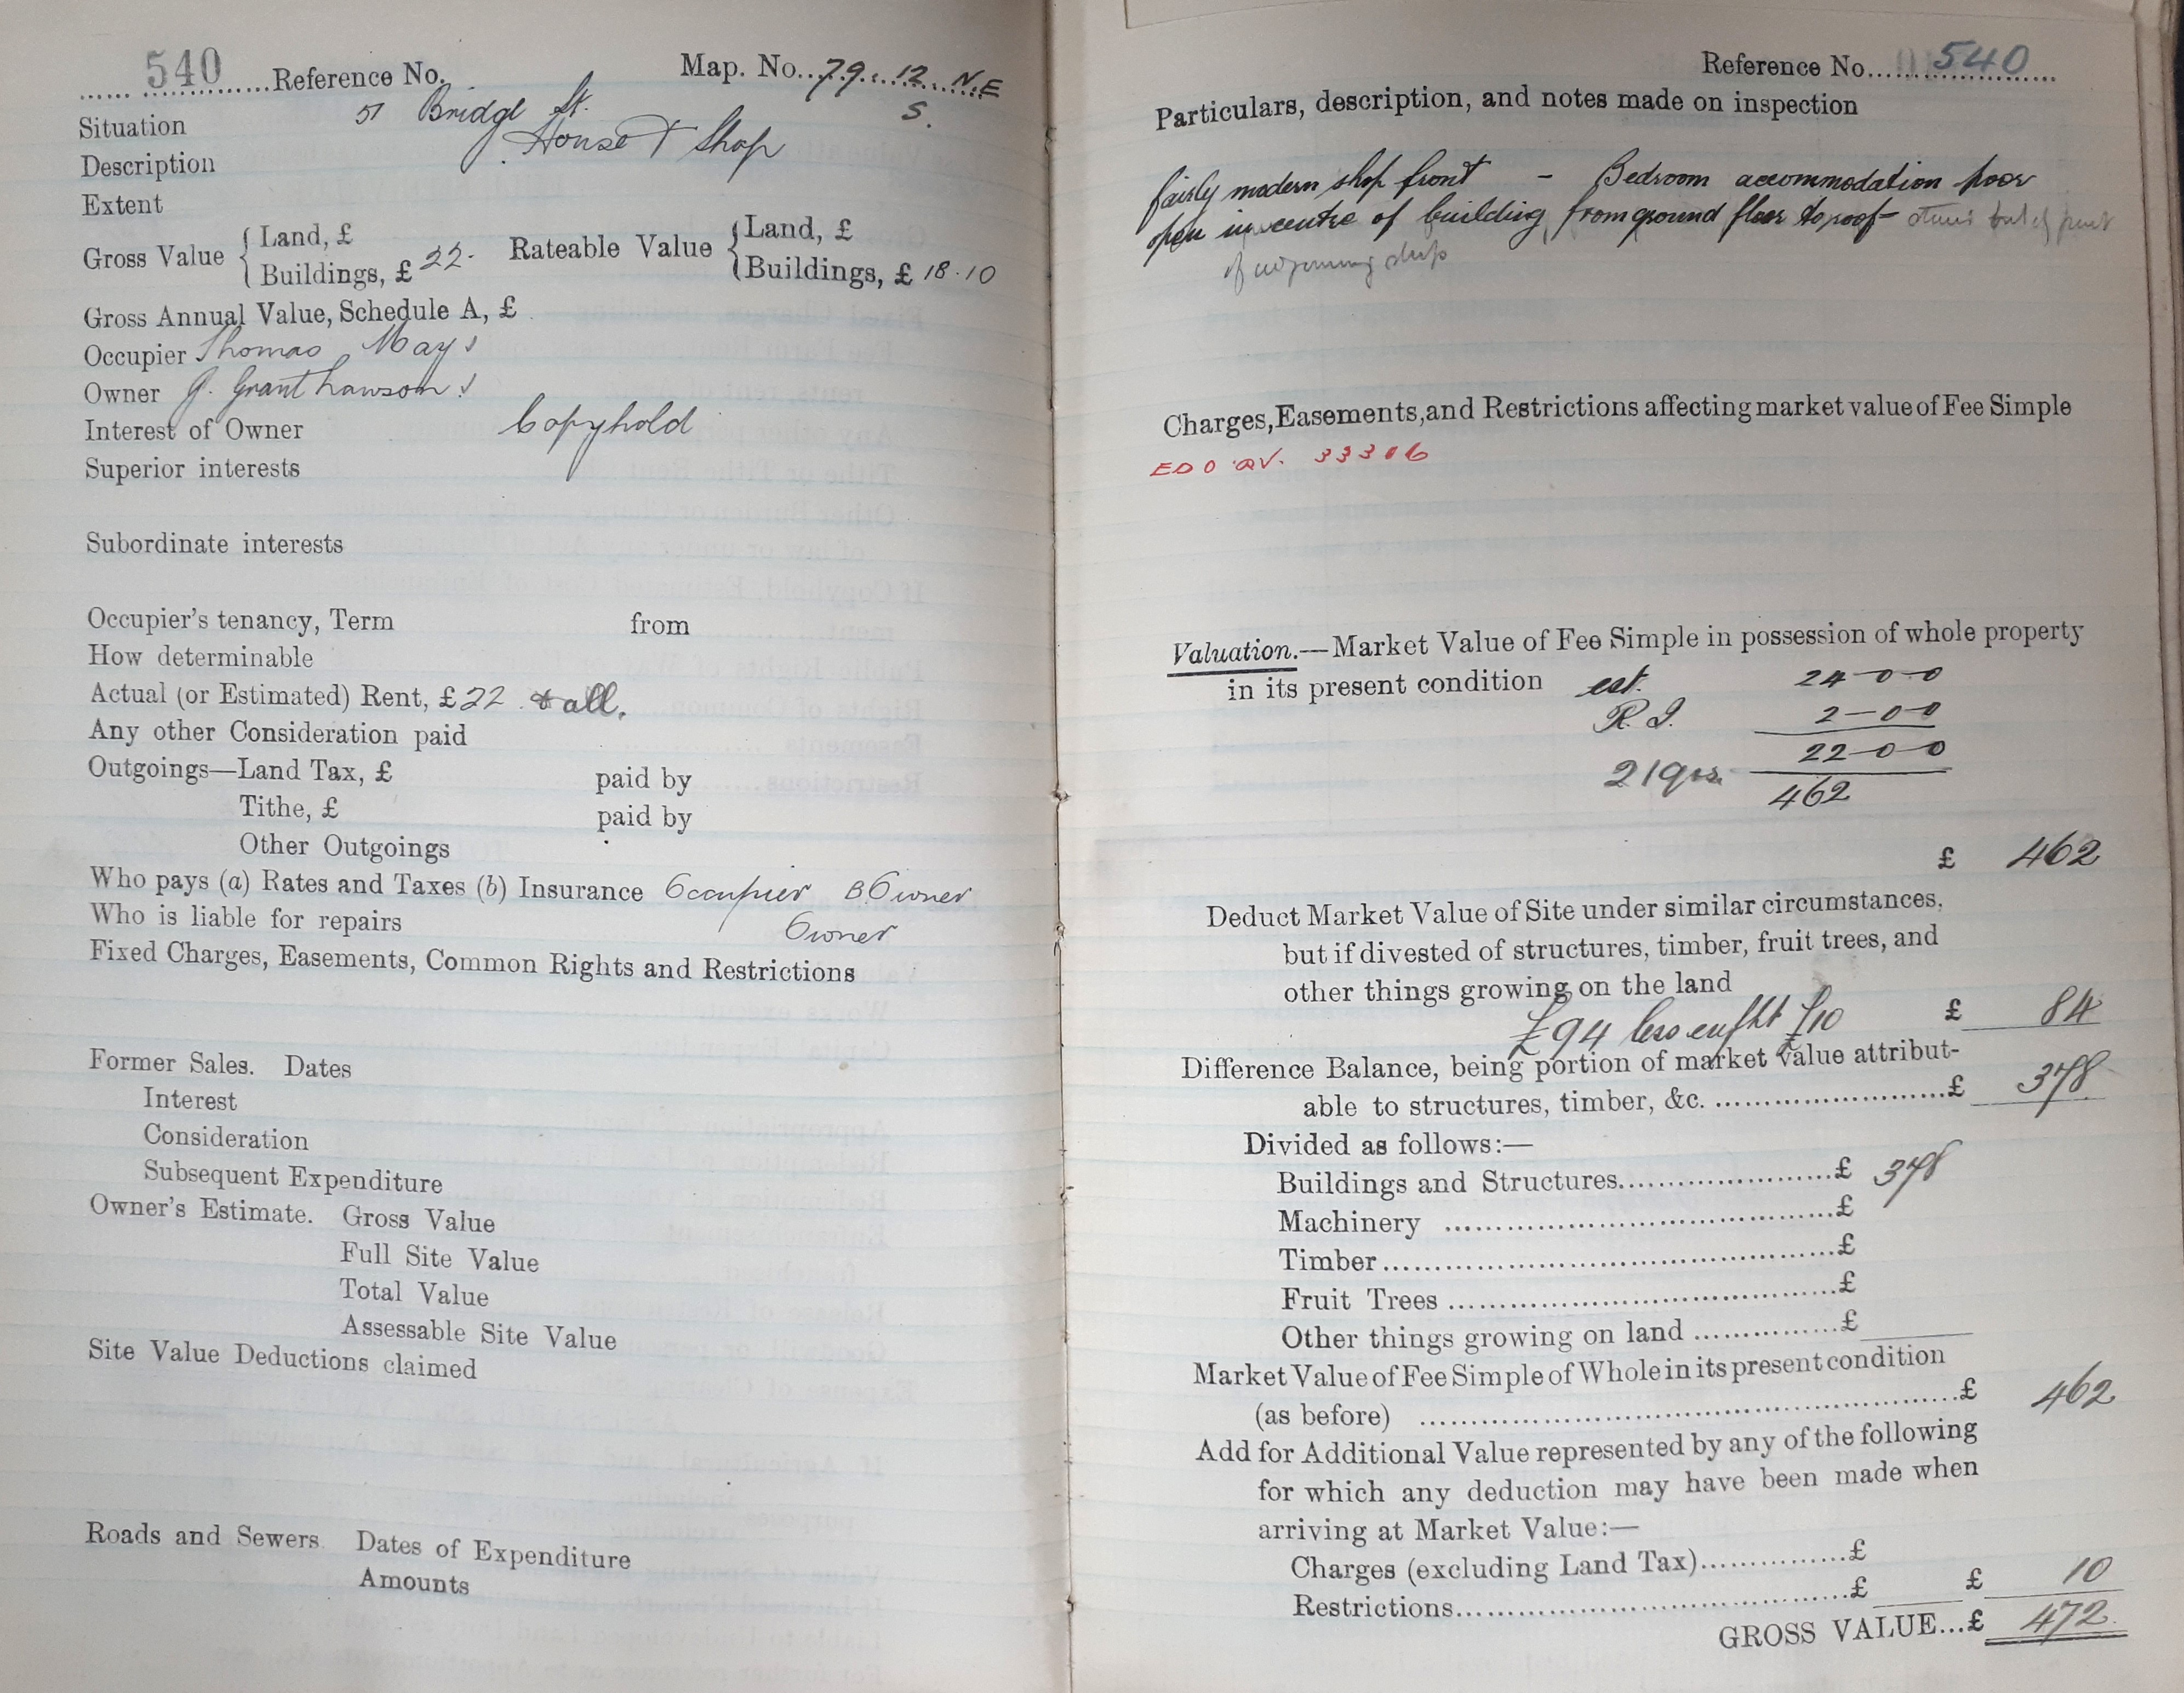 540 Reference No. Map. No. 79. 12 N.E
S.
Situation 51 Bridge St.
Description House & Shop
Extent
Gross Value { Land, £ Rateable Value { Land, £
Buildings, £ 22. Buildings, £ 18.10
Gross Annual Value, Schedule A, £
Occupier Thomas Mays
Owner J. Grant Lawson
Interest of Owner Copyhold
Superior interests
Subordinate interests
Occupier's tenancy, Term from
How determinable
Actual (or Estimated) Rent, £22 & all.
Any other Consideration paid
Outgoings—Land Tax, £ paid by
Tithe, £ paid by
Other Outgoings
Who pays (a) Rates and Taxes (b) Insurance Occupier B. Owner
Who is liable for repairs Owner
Fixed Charges, Easements, Common Rights and Restrictions
Former Sales. Dates
Interest
Consideration
Subsequent Expenditure
Owner's Estimate. Gross Value
Full Site Value
Total Value
Assessable Site Value
Site Value Deductions claimed
Roads and Sewers. Dates of Expenditure
Amounts
Reference No. 540
Particulars, description, and notes made on inspection
fairly modern shop front - Bedroom accommodation poor
open in centre of building from ground floor to roof-
of adjoining shop
Charges, Easements, and Restrictions affecting market value of Fee Simple
EDO QV. 33306
Valuation.—Market Value of Fee Simple in possession of whole property
in its present condition est. 24-0-0
R.I. 2-0-0
22-0-0
21 yrs. 462
£ 462
Deduct Market Value of Site under similar circumstances,
but if divested of structures, timber, fruit trees, and
other things growing on the land
£94 less enfht £10 £ 84
Difference Balance, being portion of market value attribut-
able to structures, timber, &c. £ 378
Divided as follows:—
Buildings and Structures £ 378
Machinery £
Timber £
Fruit Trees £
Other things growing on land £
Market Value of Fee Simple of Whole in its present condition
(as before) £ 462
Add for Additional Value represented by any of the following
for which any deduction may have been made when
arriving at Market Value:—
Charges (excluding Land Tax) £
Restrictions £ £ 10
GROSS VALUE...£ 472